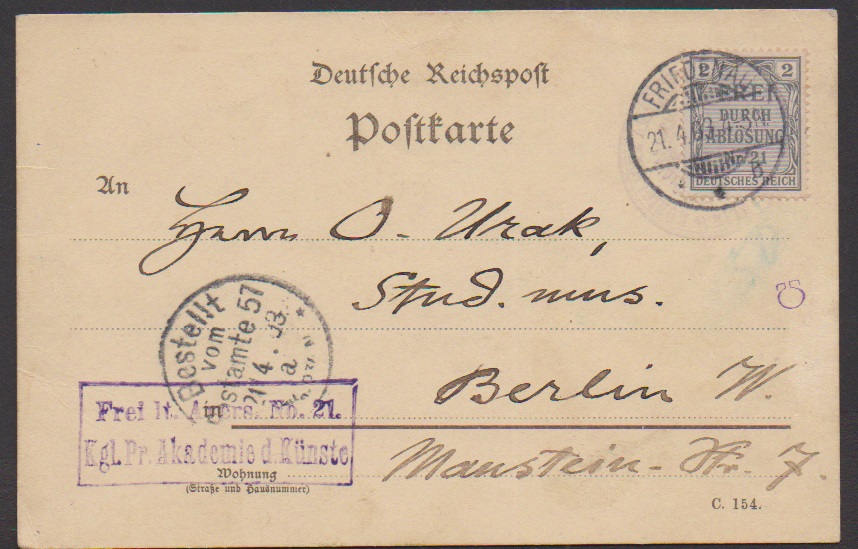 Deutsche Reichspost
Postkarte
2 2
FREI
DURCH
ABLÖSUNG
Nr. 21
DEUTSCHES REICH
FRIEDENAU
21. 4. 03
b
An
Herrn O. Urak,
Stud. mus.
Bestellt
vom
Postamte 57
21 4. 03.
a
in
Berlin W.
Frei lt. Avers. No. 21.
Kgl. Pr. Akademie d. Künste
Wohnung
(Straße und Hausnummer)
Manstein-Str. 7.
C. 154.